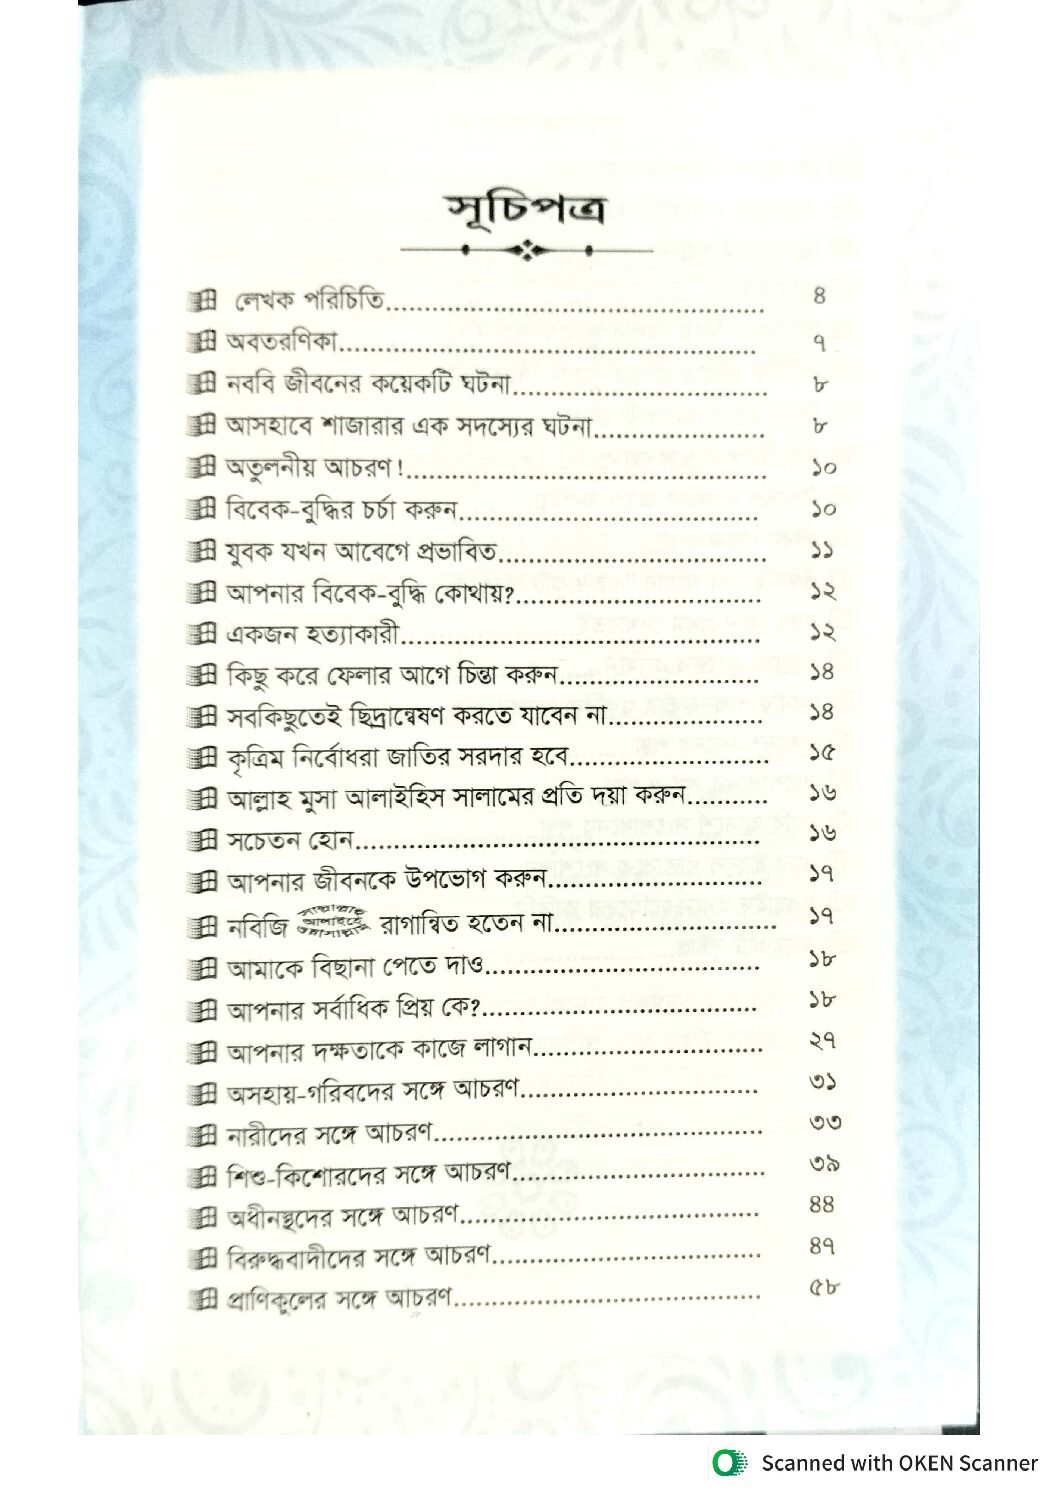 সূচিপত্র
লেখক পরিচিতি.................................................... ৪
অবতরণিকা.......................................................... ৭
নববি জীবনের কয়েকটি ঘটনা................................... ৮
আসহাবে শাজারার এক সদস্যের ঘটনা........................ ৮
অতুলনীয় আচরণ!.................................................. ১০
বিবেক-বুদ্ধির চর্চা করুন.......................................... ১০
যুবক যখন আবেগে প্রভাবিত..................................... ১১
আপনার বিবেক-বুদ্ধি কোথায়?.................................. ১২
একজন হত্যাকারী.................................................. ১২
কিছু করে ফেলার আগে চিন্তা করুন............................ ১৪
সবকিছুতেই ছিদ্রান্বেষণ করতে যাবেন না..................... ১৪
কৃত্রিম নির্বোধরা জাতির সরদার হবে........................... ১৫
আল্লাহ মুসা আলাইহিস সালামের প্রতি দয়া করুন........... ১৬
সচেতন হোন........................................................ ১৬
আপনার জীবনকে উপভোগ করুন.............................. ১৭
নবিজি সাল্লাল্লাহু আলাইহি ওয়াসাল্লাম রাগান্বিত হতেন না............................... ১৭
আমাকে বিছানা পেতে দাও...................................... ১৮
আপনার সর্বাধিক প্রিয় কে?...................................... ১৮
আপনার দক্ষতাকে কাজে লাগান................................ ২৭
অসহায়-গরিবদের সঙ্গে আচরণ................................. ৩১
নারীদের সঙ্গে আচরণ............................................. ৩৩
শিশু-কিশোরদের সঙ্গে আচরণ................................... ৩৯
অধীনস্থদের সঙ্গে আচরণ......................................... ৪৪
বিরুদ্ধবাদীদের সঙ্গে আচরণ..................................... ৪৭
প্রাণিকুলের সঙ্গে আচরণ.......................................... ৫৮
Scanned with OKEN Scanner